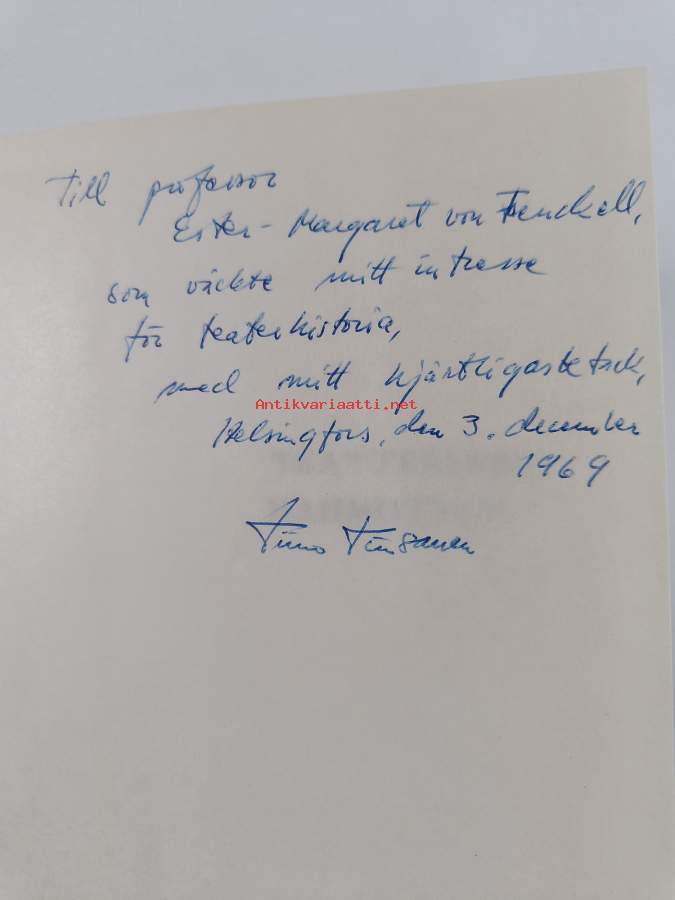 Till professor
Ester-Margaret von Frenckell,
som väckte mitt intresse
för teaterhistoria,
med mitt hjärtligaste tack,
Antikvariaatti.net
Helsingfors, den 3. december
1969
Timo Tiusanen